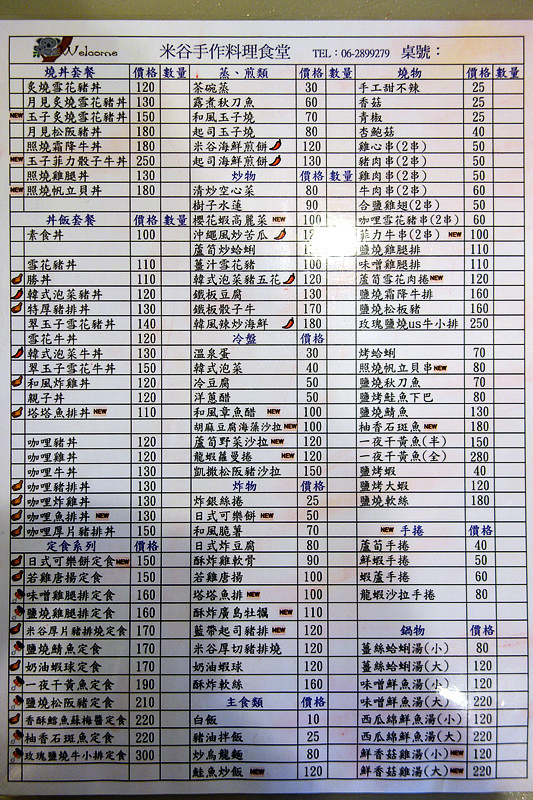 Welcome 米谷手作料理食堂 TEL：06-2899279 桌號：
燒丼套餐 價格 數量
炙燒雪花豬丼 120
月見炙燒雪花豬丼 130
NEW 玉子炙燒雪花豬丼 150
月見松阪豬丼 180
照燒霜降牛丼 180
NEW 玉子菲力骰子牛丼 250
照燒雞腿丼 130
NEW 照燒帆立貝丼 180
丼飯套餐 價格 數量
素食丼 100
雪花豬丼 110
勝丼 110
韓式泡菜豬丼 120
特厚豬排丼 130
翠玉子雪花豬丼 140
雪花牛丼 120
韓式泡菜牛丼 130
翠玉子雪花牛丼 150
和風炸雞丼 120
親子丼 120
塔塔魚排丼 NEW 110
咖哩豬丼 120
咖哩雞丼 120
咖哩牛丼 130
咖哩豬排丼 130
咖哩炸雞丼 130
咖哩魚排丼 NEW 130
咖哩厚片豬排丼 150
定食系列 價格
日式可樂餅定食 NEW 150
若雞唐揚定食 150
味噌雞腿排定食 160
鹽燒雞腿排定食 160
米谷厚片豬排燒定食 170
鹽燒鯖魚定食 170
奶油蝦球定食 170
一夜干黃魚定食 190
鹽燒松阪豬定食 210
香酥鱈魚蘇梅醬定食 220
柚香石斑魚定食 220
玫瑰鹽燒牛小排定食 300
蒸、煎類 價格 數量
茶碗蒸 30
露煮秋刀魚 60
和風玉子燒 70
起司玉子燒 80
米谷海鮮煎餅 120
起司海鮮煎餅 130
炒物 價格 數量
清炒空心菜 80
樹子水蓮 90
櫻花蝦高麗菜 NEW 100
沖繩風炒苦瓜
蘆筍炒蛤蜊
薑汁雪花豬 100
韓式泡菜豬五花 120
鐵板豆腐 130
鐵板骰子牛 170
韓風辣炒海鮮 180
冷盤 價格
溫泉蛋 30
韓式泡菜 40
冷豆腐 50
洋蔥醋 50
和風章魚醋 NEW 100
胡麻豆腐海藻沙拉 NEW 100
蘆筍野菜沙拉 NEW 120
龍蝦蘿蔓捲 NEW 120
凱撒松阪豬沙拉 150
炸物 價格
炸銀絲捲 25
日式可樂餅 NEW 50
和風脆薯 70
日式炸豆腐 80
酥炸雞軟骨 90
若雞唐揚 100
塔塔魚排 NEW 100
酥炸廣島牡蠣 NEW 110
藍帶起司豬排 NEW 120
米谷厚切豬排燒 120
奶油蝦球 120
酥炸軟絲 160
主食類 價格
白飯 10
豬油拌飯 25
炒烏龍麵 80
鮭魚炒飯 NEW 120
燒物 價格 數量
手工甜不辣 25
香菇 25
青椒 25
杏鮑菇 40
雞心串(2串) 50
豬肉串(2串) 50
雞肉串(2串) 50
牛肉串(2串) 60
合鹽雞翅(2串) 50
咖哩雪花豬串(2串) 60
菲力牛串(2串) NEW 100
鹽燒雞腿排 110
味噌雞腿排 110
蘆筍雪花肉捲 NEW 120
鹽燒霜降牛排 160
鹽燒松板豬 160
玫瑰鹽燒us牛小排 250
烤蛤蜊 70
照燒帆立貝串 NEW 80
鹽燒秋刀魚 70
鹽烤鮭魚下巴 80
鹽燒鯖魚 130
柚香石斑魚 NEW 180
一夜干黃魚(半) 150
一夜干黃魚(全) 280
鹽烤蝦 40
鹽烤大蝦 120
鹽燒軟絲 180
NEW 手捲 價格
蘆筍手捲 40
鮮蝦手捲 50
蝦蘆手捲 60
龍蝦沙拉手捲 80
鍋物 價格
薑絲蛤蜊湯(小) 80
薑絲蛤蜊湯(大) 120
味噌鮮魚湯(小) 120
味噌鮮魚湯(大) 220
西瓜綿鮮魚湯(小) 120
西瓜綿鮮魚湯(大) 220
鮮香菇雞湯(小) NEW 120
鮮香菇雞湯(大) NEW 220